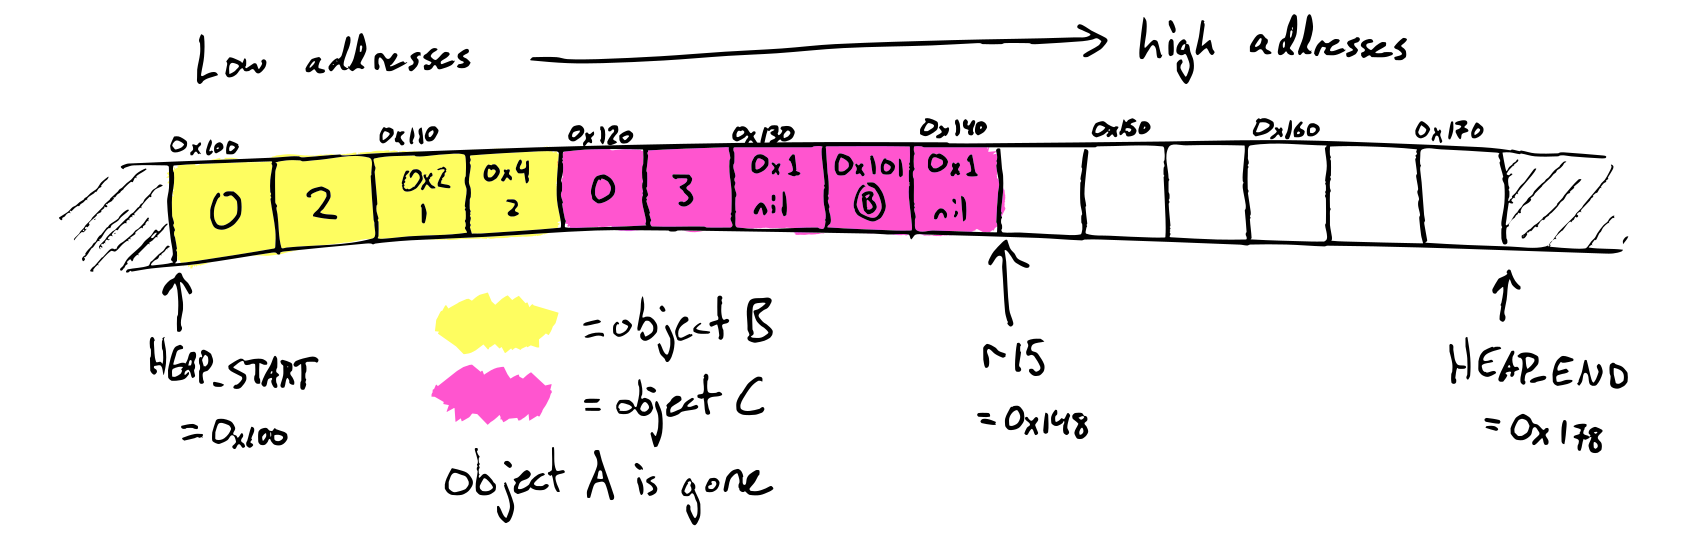 Low addresses high addresses
0x100 0x110 0x120 0x130 0x140 0x150 0x160 0x170
0 2 0x2 0x4 0 3 0x1 0x101 0x1
1 2 nil B nil
HEAP_START
= 0x100
= object B
= object C
object A is gone
r15
= 0x148
HEAP_END
= 0x178